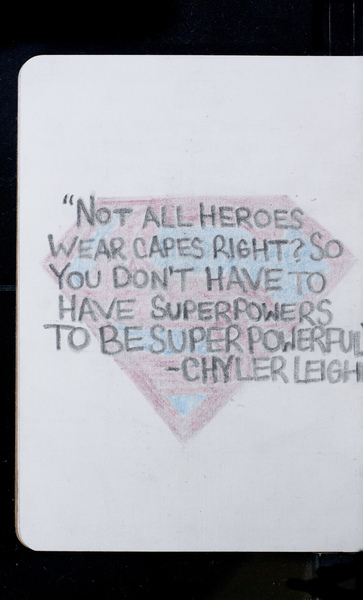 "NOT ALL HEROES
WEAR CAPES RIGHT? SO
YOU DON'T HAVE TO
HAVE SUPERPOWERS
TO BE SUPER POWERFUL
-CHYLER LEIGH